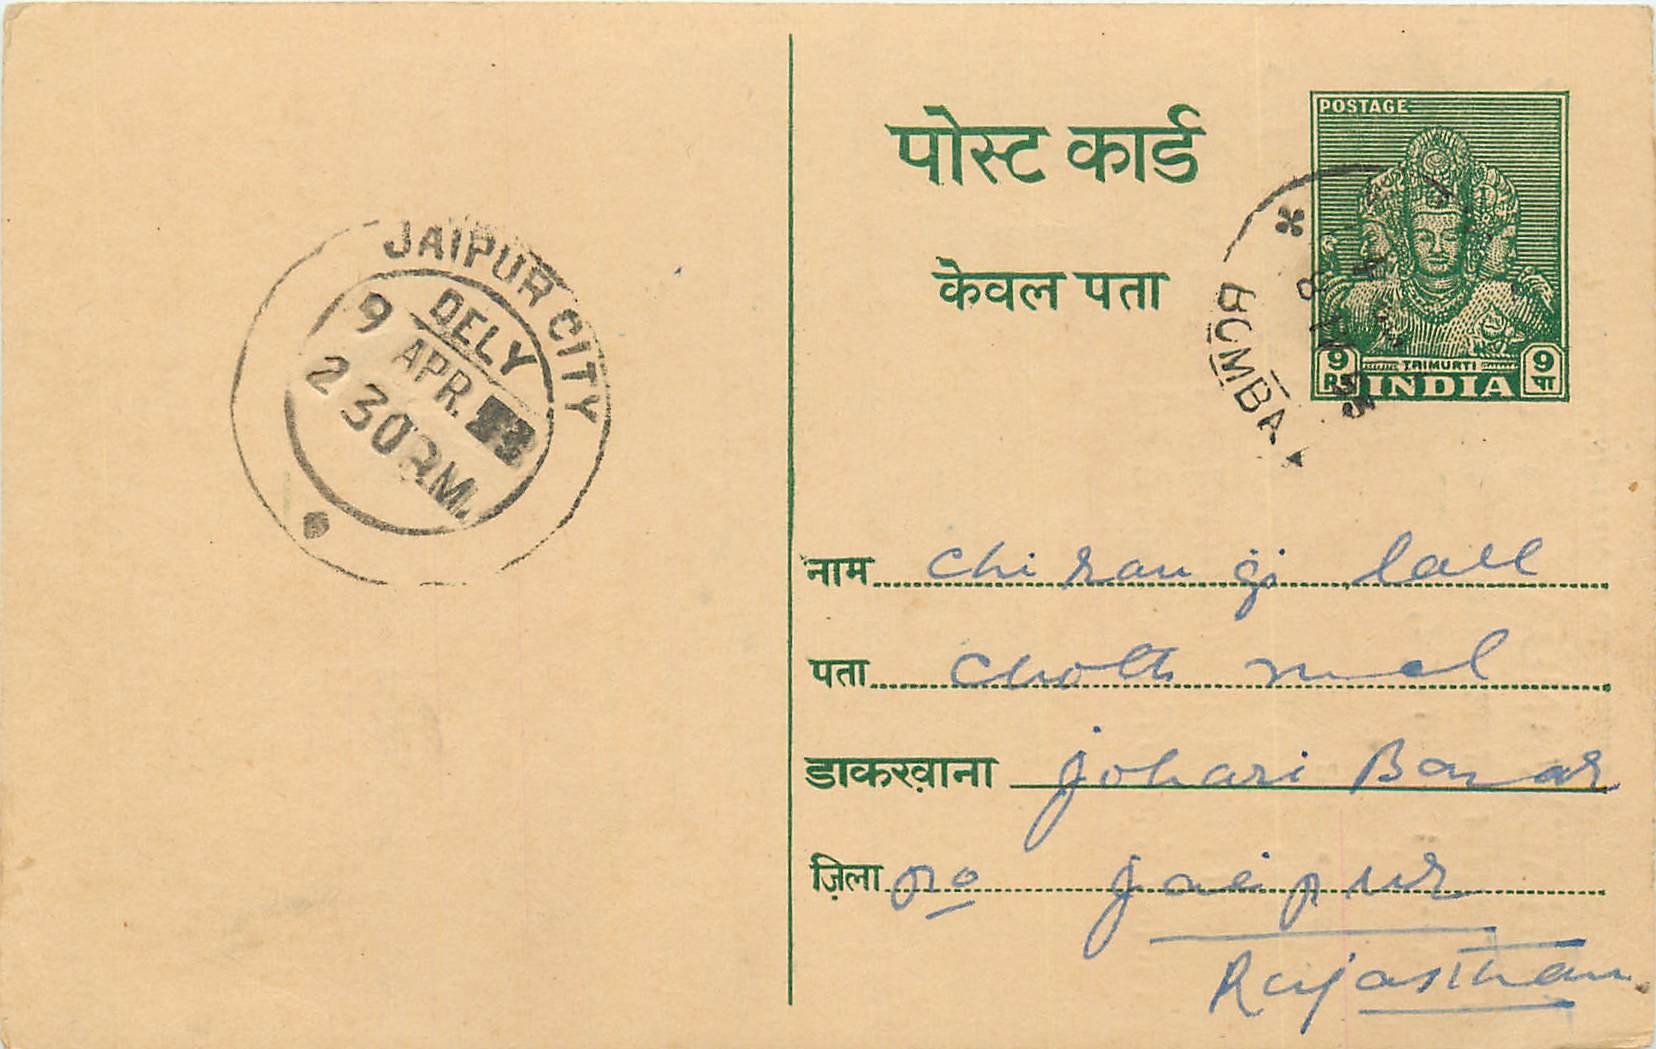 पोस्ट कार्ड
केवल पता
POSTAGE
9 Ps
TRIMURTI
INDIA
9 पा
BOMBA
JAIPUR CITY
DELY
9 APR.
2 30 P.M.
नाम Chiranji Lall
पता Choth mal
डाकख़ाना Johari Bazar
ज़िला Po Jaipur
Rajasthan